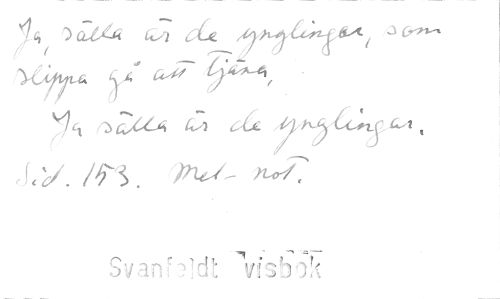 Ja, sälla är de ynglingar, som
slippa gå att tjäna,
Ja sälla är de ynglingar.
Sid. 153. Mel- not.
Svanfeldt visbok